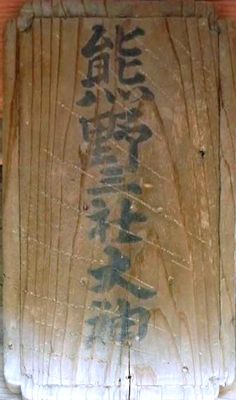 熊野三社大神